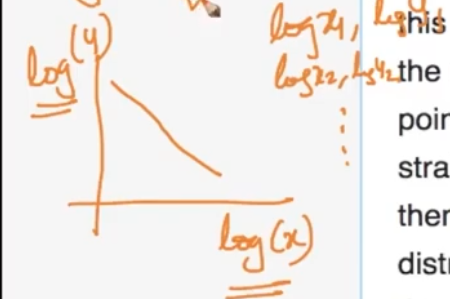 log(y)
log x1, log y1
log x2, log y2
log(x)
this
the
poin
stra
ther
distr